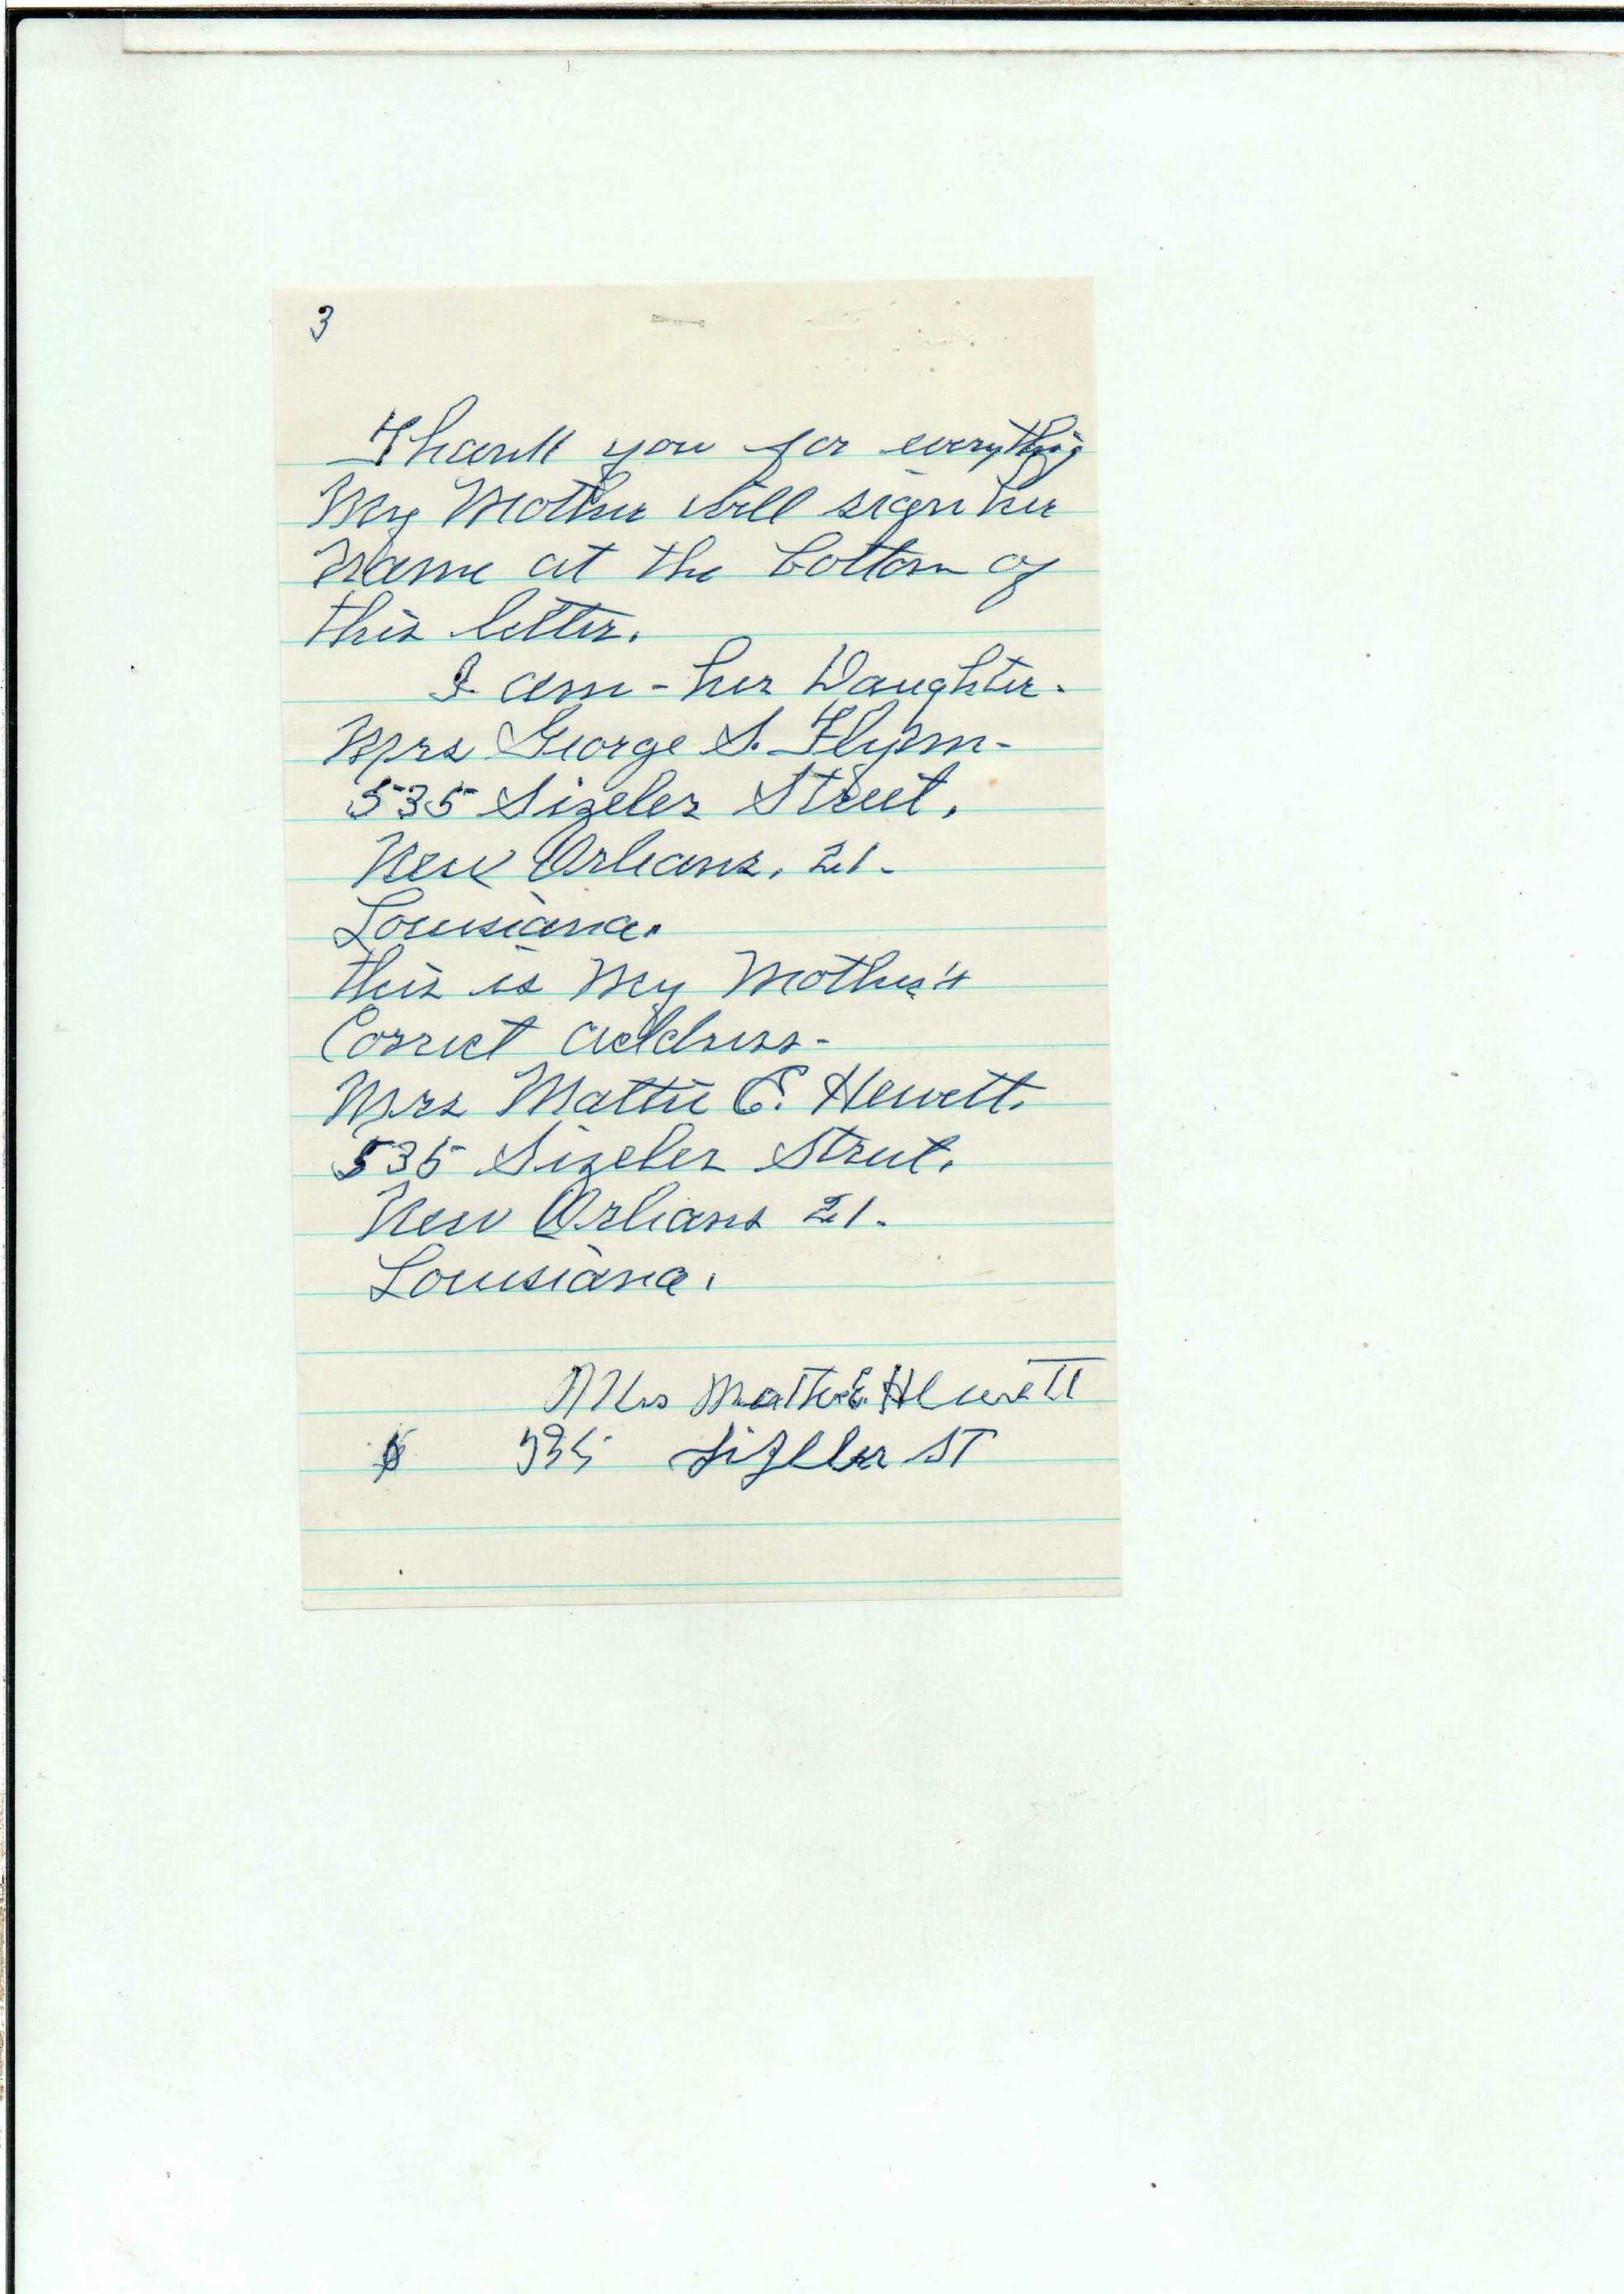 3
Thank you for everything
My Mother will sign her
Name at the bottom of
this letter.
I am - her Daughter.
Mrs George S. Flynn-
535 Sizeler Street.
New Orleans, 21.
Louisiana.
this is My Mother's
Correct address-
Mrs Mattie E. Hewett.
535 Sizeler Street.
New Orleans 21.
Louisiana.
Mrs Mattie E. Hewett
535 Sizeler ST